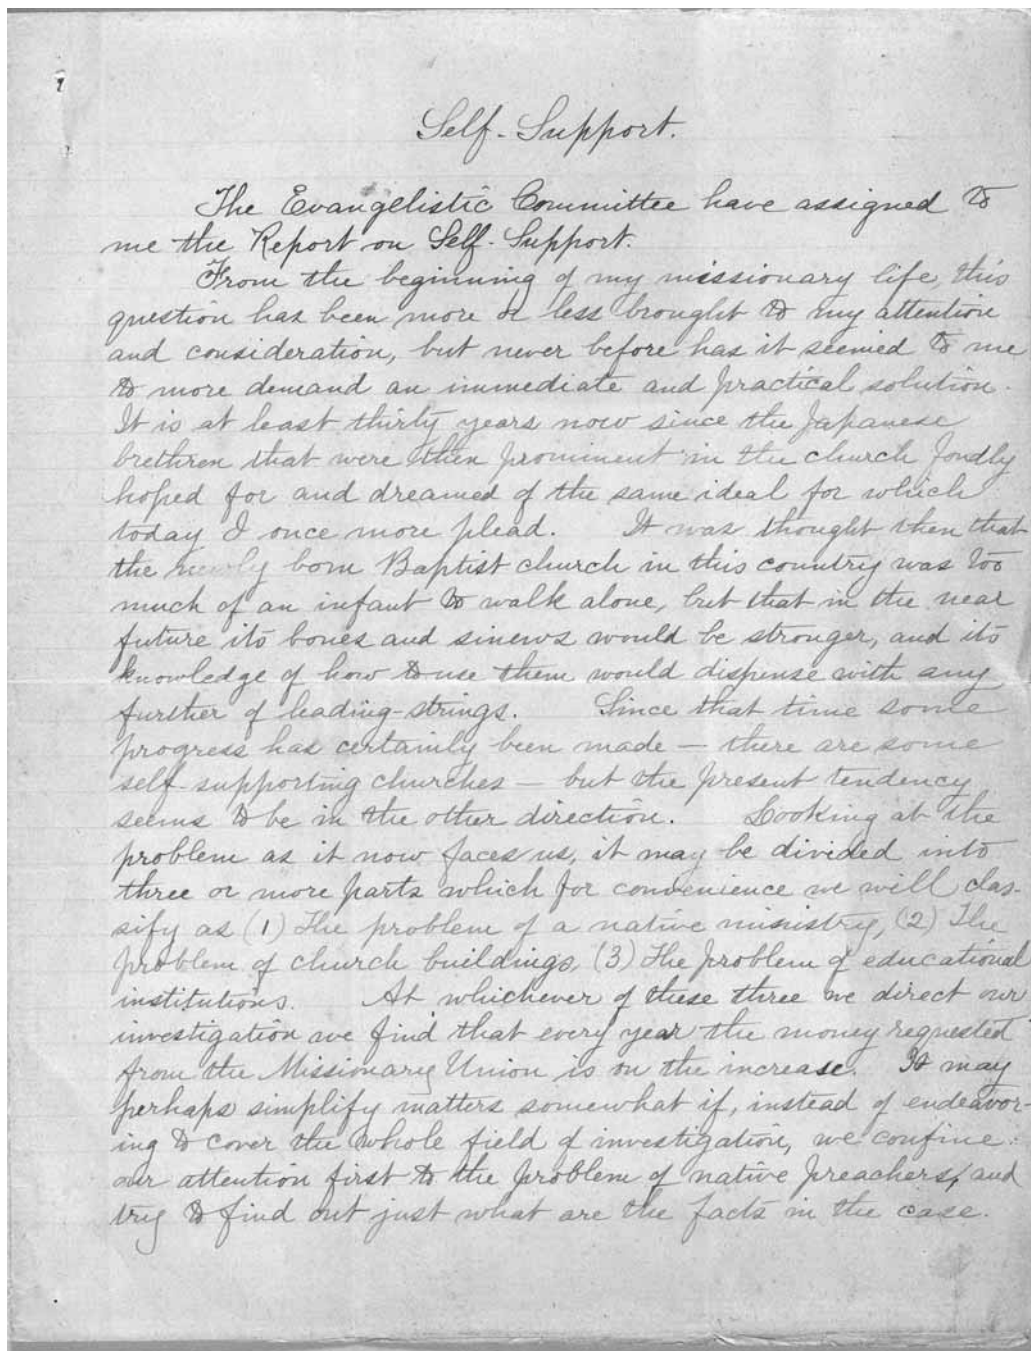 Self-Support.
The Evangelistic Committee have assigned to
me the Report on Self-Support.
From the beginning of my missionary life, this
question has been more or less brought to my attention
and consideration, but never before has it seemed to me
to more demand an immediate and practical solution.
It is at least thirty years now since the Japanese
brethren that were then prominent in the church fondly
hoped for and dreamed of the same ideal for which
today I once more plead. It was thought then that
the newly born Baptist church in this country was too
much of an infant to walk alone, but that in the near
future its bones and sinews would be stronger, and its
knowledge of how to use them would dispense with any
further of leading-strings. Since that time some
progress has certainly been made — there are some
self-supporting churches — but the present tendency
seems to be in the other direction. Looking at the
problem as it now faces us, it may be divided into
three or more parts which for convenience we will clas-
sify as (1) The problem of a native ministry, (2) The
problem of church buildings, (3) The problem of educational
institutions. At whichever of these three we direct our
investigation we find that every year the money requested
from the Missionary Union is on the increase. It may
perhaps simplify matters somewhat if, instead of endeavor-
ing to cover the whole field of investigation, we confine
our attention first to the problem of native preachers, and
try to find out just what are the facts in the case.